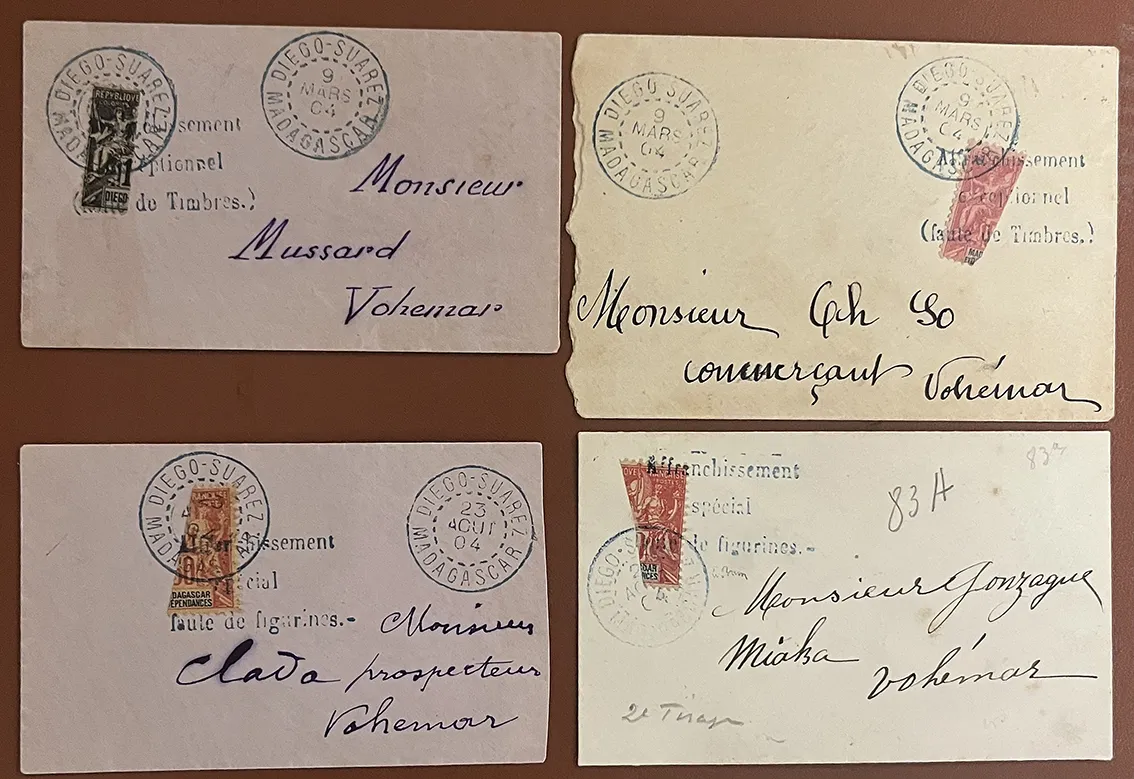 DIEGO-SUAREZ
MADAGASCAR
REPUBLIQUE
DIEGO
DIEGO-SUAREZ
9
MARS
04
MADAGASCAR
chissement
eptionnel
de Timbres.)
Monsieur
Mussard
Vohemar
DIEGO SUAREZ
9
MARS
04
MADAGASCAR
DIEGO-SUAREZ
9
MARS
04
MADAGASCAR
Affranchissement
ceptionnel
(faute de Timbres.)
Monsieur Ch So
commerçant Vohémar
DIEGO-SUAREZ
MADAGASCAR
DAGASCAR
ÉPENDANCES
DIEGO-SUAREZ
23
AOUT
04
MADAGASCAR
Affranchissement
spécial
faute de figurines.-
Monsieur
Clada prospecteur
Vohemar
Affranchissement
spécial
de figurines.-
DIEGO-SUAREZ
83a
83 A
Monsieur Gonzague
Miaka
Vohémar
2e Tirage